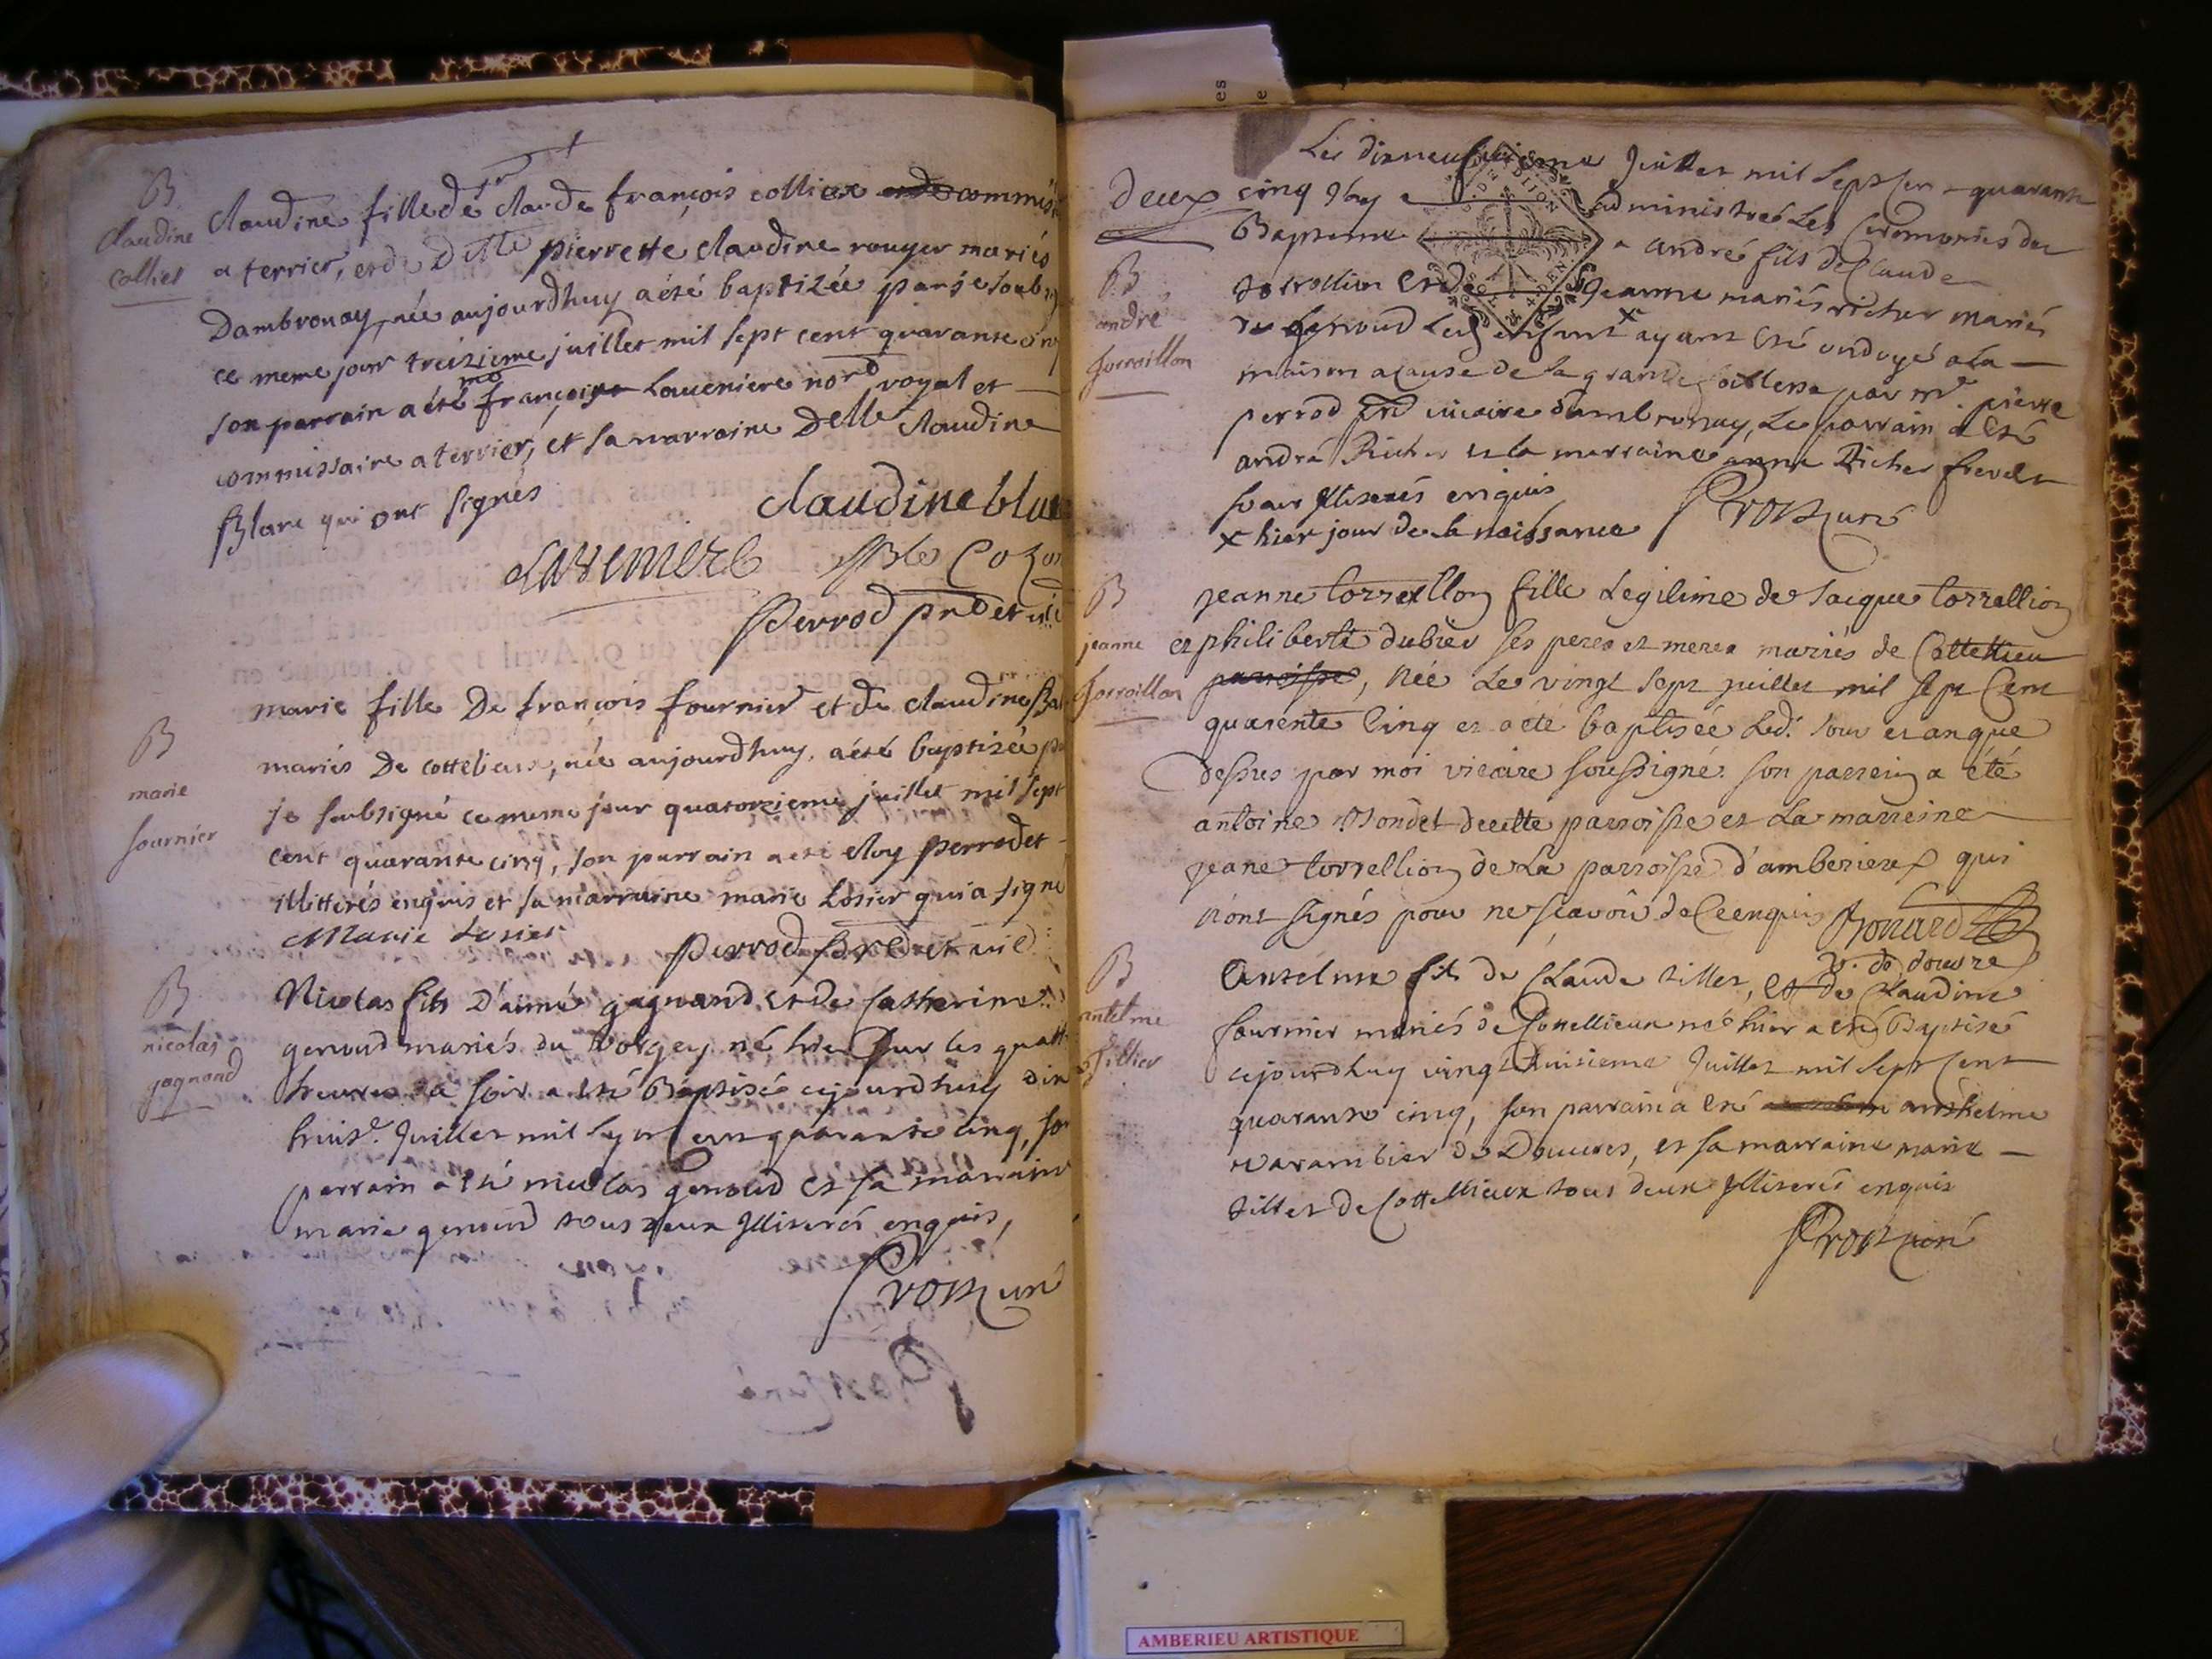 B
Claudine
Collier
sr
Claudine fille de claude françois collier commis
a terrier, et de Delle pierrette claudine rouyer mariés
Dambronay, née aujourdhuy a été baptizée par je soub
ce meme jour treizieme juillet mil sept cent quarante cinq
son parrain a été me françois Laveniere nore royal et
commissaire a terrier, et sa marraine Delle claudine
Blanc qui ont signés
claudine blan
Laveniere
Perrod pre et vic
B
marie
fournier
marie fille De françois fournier et de claudine
mariés De cottelieux, née aujourdhuy, a été baptizée p
je soubsigné ce meme jour quatorzieme juillet mil sept
cent quarante cinq, son parrain a été eloy perrodet
illitterés enquis et sa marraine marie Losier qui a signé
Marie Losier
Perrod pre et vic
B
nicolas
gagnand
Nicolas fils D'aimé gagnand et de Catherine
genoud mariés du né hier sur les quatt
heures du soir a été Baptisé cejourdhuy dix
huite. Juillet mil sept cent quarante cinq, son
parrain a été nicolas genoud et sa marraine
marie genoud tous deux Illiterés enquis,
curé
Le dixneufvieme Juillet mil sept cen quarante
Deux cinq Jay administré les ceremonies du
G. DE DIJON
Bapteme a andré fils de Claude
B
andré
Jorroillon
torrollion et de Jeanne mariés richer mariés
Led enfant x ayant été ondoyé a la
maison a cause de sa grande foiblesse par mr. pierre
perrod pre vicaire d'ambronay, Le parrain a été
andré Richer et la marraine anne Richer frere et
soeur Illiterés enquis
x hier jour de sa naissance
curé
B
jeanne
Jorroillon
Jeanne torrellion fille Legitime de Jacque torrellion
et philiberte dubier ses peres et meres mariés de Cottellieu
parroisse, née Le vingt sept juillet mil sept Cent
quarente Cinq et a été baptisée Led. jour et an que
dessus par moi vicaire soussigné. son parrein a été
antoine Mondet decette parroisse et La marreine
jeane torrellion de La parroisse d'amberieux qui
n'ont signés pour ne sçavoir de Ce enquis
v. de douvre
B
antelme
tillier
Antelme fils de Claude tillet, et de Claudine
fournier mariés de Cottellieux né hier a été Baptisé
cejourdhuy vingt huitieme Juillet mil sept Cent
quarante cinq, son parrain a été anthelme
varambier de Douvres, et sa marraine marie
tillet de Cottellieux tous deux Illiterés enquis
curé
AMBERIEU ARTISTIQUE